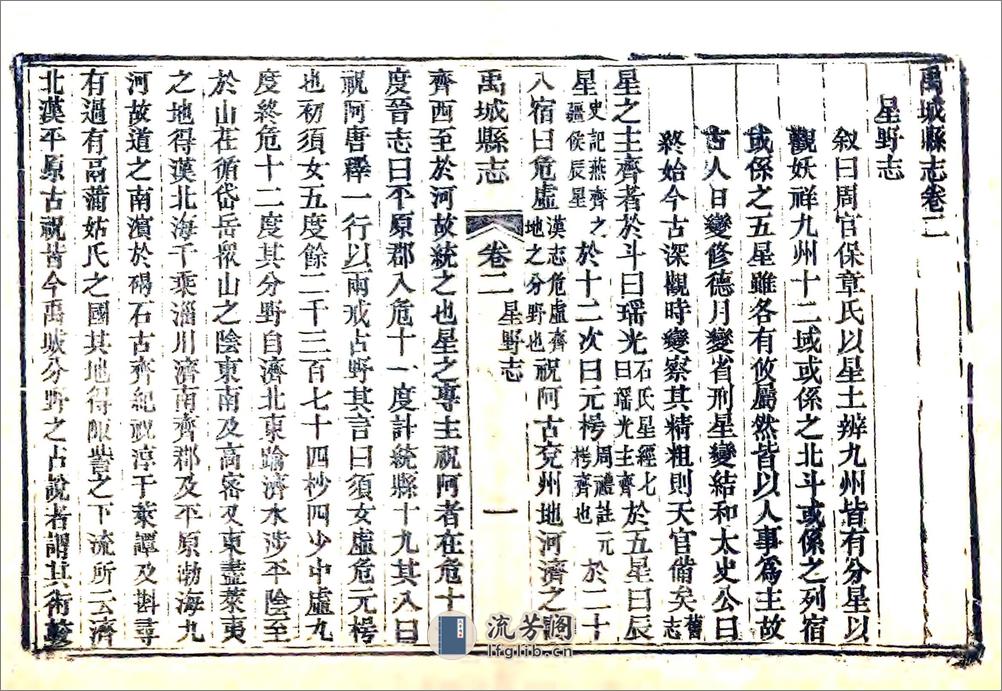 禹城縣志卷二
星野志
敘曰周官保章氏以星土辨九州皆有分星以
觀妖祥九州十二域或係之北斗或係之列宿
或係之五星雖各有攸屬然皆以人事為主故
古人日變修德月變省刑星變結和太史公曰
終始今古深觀時變察其精粗則天官備矣舊志
星之主齊者於斗曰瑶光石氏星經七曰瑶光主齊於五星曰辰
星史記燕齊之疆候辰星於十二次曰元枵周禮註元枵齊也於二十
八宿曰危虛漢志危虛齊地之分野也祝阿古兗州地河濟之
禹城縣志
卷二
星野志
一
齊西至於河故統之也星之專主祝阿者在危十
度晉志曰平原郡入危十一度計統縣十九其入曰
祝阿唐釋一行以兩戒占野其言曰須女虛危元枵
也初須女五度餘二千三百七十四杪四少中虛九
度終危十二度其分野自濟北東踰濟水涉平陰至
於山茌循岱岳衆山之陰東南及高密又東盡萊夷
之地得漢北海千乘淄川濟南齊郡及平原渤海九
河故道之南濵於碣石古齊紀祝淳于萊譚及斟尋
有過有鬲蒲姑氏之國其地得陬訾之下流所云濟
北漢平原古祝皆今禹城分野之占說者謂其術
流芳阁
lfglib.cn